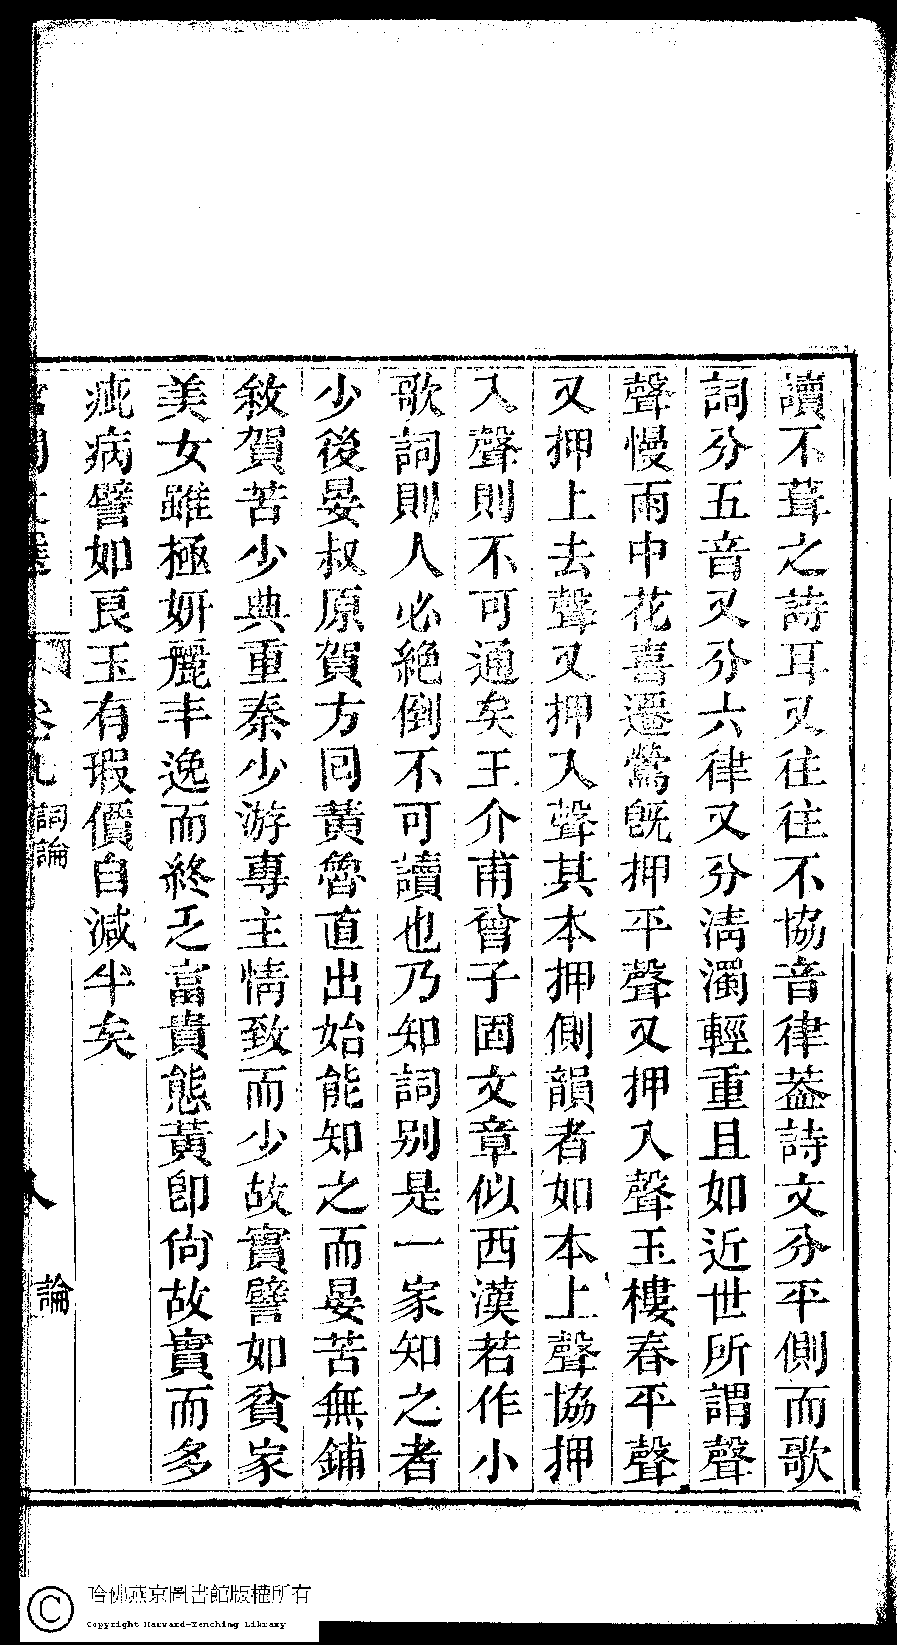 讀不葺之詩耳又往往不協音律葢詩文分平側而歌
詞分五音又分六律又分淸濁輕重且如近世所謂聲
聲慢雨中花喜遷鶯旣押平聲又押入聲玉樓春平聲
又押上去聲又押入聲其本押側韻者如本上聲協押
入聲則不可通矣王介甫曾子固文章似西漢若作小
歌詞則人必絕倒不可讀也乃知詞别是一家知之者
少後晏叔原賀方囘黃魯直出始能知之而晏苦無鋪
敘賀苦少典重秦少游專主情致而少故實譬如貧家
美女雖極姸麗丰逸而終乏富貴態黃卽尙故實而多
疵病譬如良玉有瑕價自減半矣
卷九
詞論
八
論
哈佛燕京圖書館版權所有
Copyright Harvard-Yenching Library